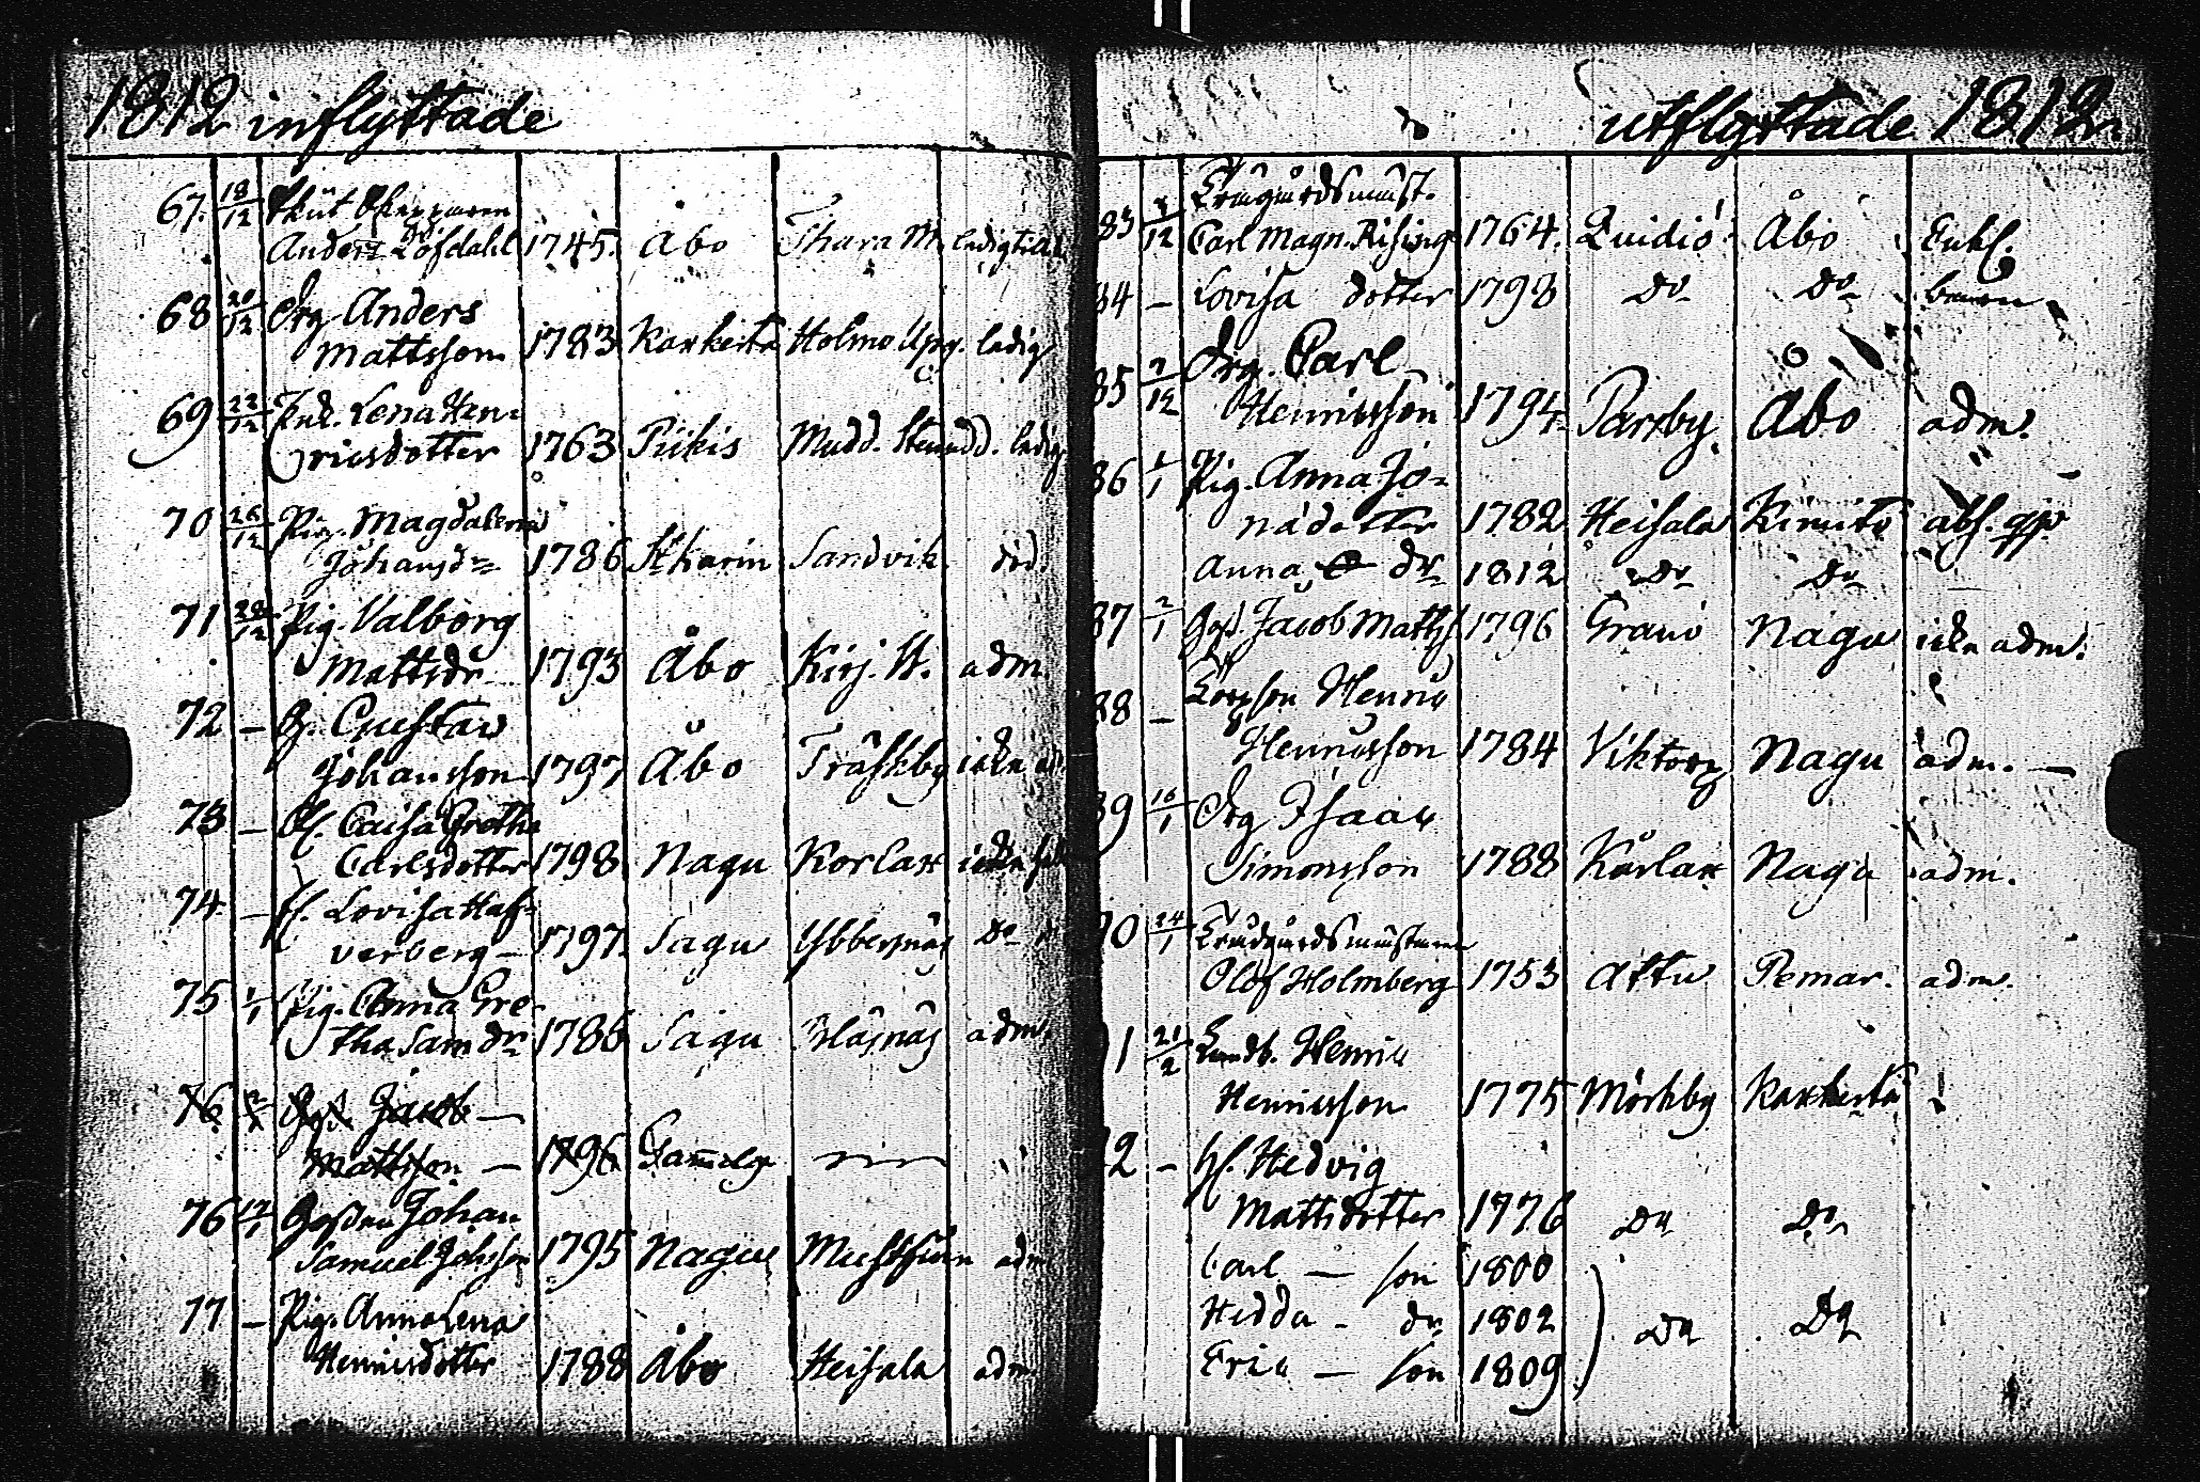 1812 inflyttade
67. 18/12
Anders Löfdahl 1745. Åbo Thara M. ledig
68 20/12 Drg Anders
Mattsson 1783 Karkerta Holmo Uprg. ledig
69 22/12 Enk. Lena Hen-
ricsdotter 1763 Pikis Mudd. ledig
70 26/12 Pig. Magdalena
Johansdr 1786 St Karin Sandvik do.
71 28/12 Pig. Valborg
Mattsdr 1793 Åbo Kirj. St. adm
72 – G. Gustav
Johansson 1797 Åbo Träskby icke
73 – Fl. Caisa Gretha
Carlsdotter 1798 Nagu Korlax icke
74 – Fl. Lovisa Haf-
verberg – 1797. Sagu Ybbersnäs Do
75 1/1 Pig. Anna Gre-
tha Sam dr 1786 Sagu Bläsnäs adm.
76 2/1 Goss. Jacob –
Mattsson – 1796 Gammelg
76 17/1 Gossen Johan
Samuel Johsson 1795 Nagu Mustfinn adm
77 – Pig. Anna Lena
Henricsdotter 1788 Åbo Heisala adm
utflyttade 1812
83 /12 Trägårdsmäst.
Carl Magn. Rising 1764. Qvidiö Åbo Enkl.
84 – Lovisa dotter 1798 Do Do barn
85 2/12 Drg. Carl
Henricsson 1794 Parsby Åbo adm.
86 1/1 Pig. Anna Jo-
nädotter 1782 Heisala Kimito abs.
Anna dr 1812 Do Do
87 2/1 Goss. Jacob Matts 1796 Granö Nagu icke adm.
88 – Torpson Henric
Henricsson 1784 Viktorp Nagu adm. –
89 16/1 Drg Isaac
Simonsson 1788 Kårlax Nagu adm.
90 24/1 Trädgårdsmästaren
Olof Holmberg 1753 Attu Pemar. adm.
91 21/2 Landb. Henric
Henricsson 1775 Mörkby Karkerta
92 – H. Hedvig
Mattsdotter 1776 Do Do
Carl – son 1800
Hedda – dr 1802 Do Do
Eric – son 1809